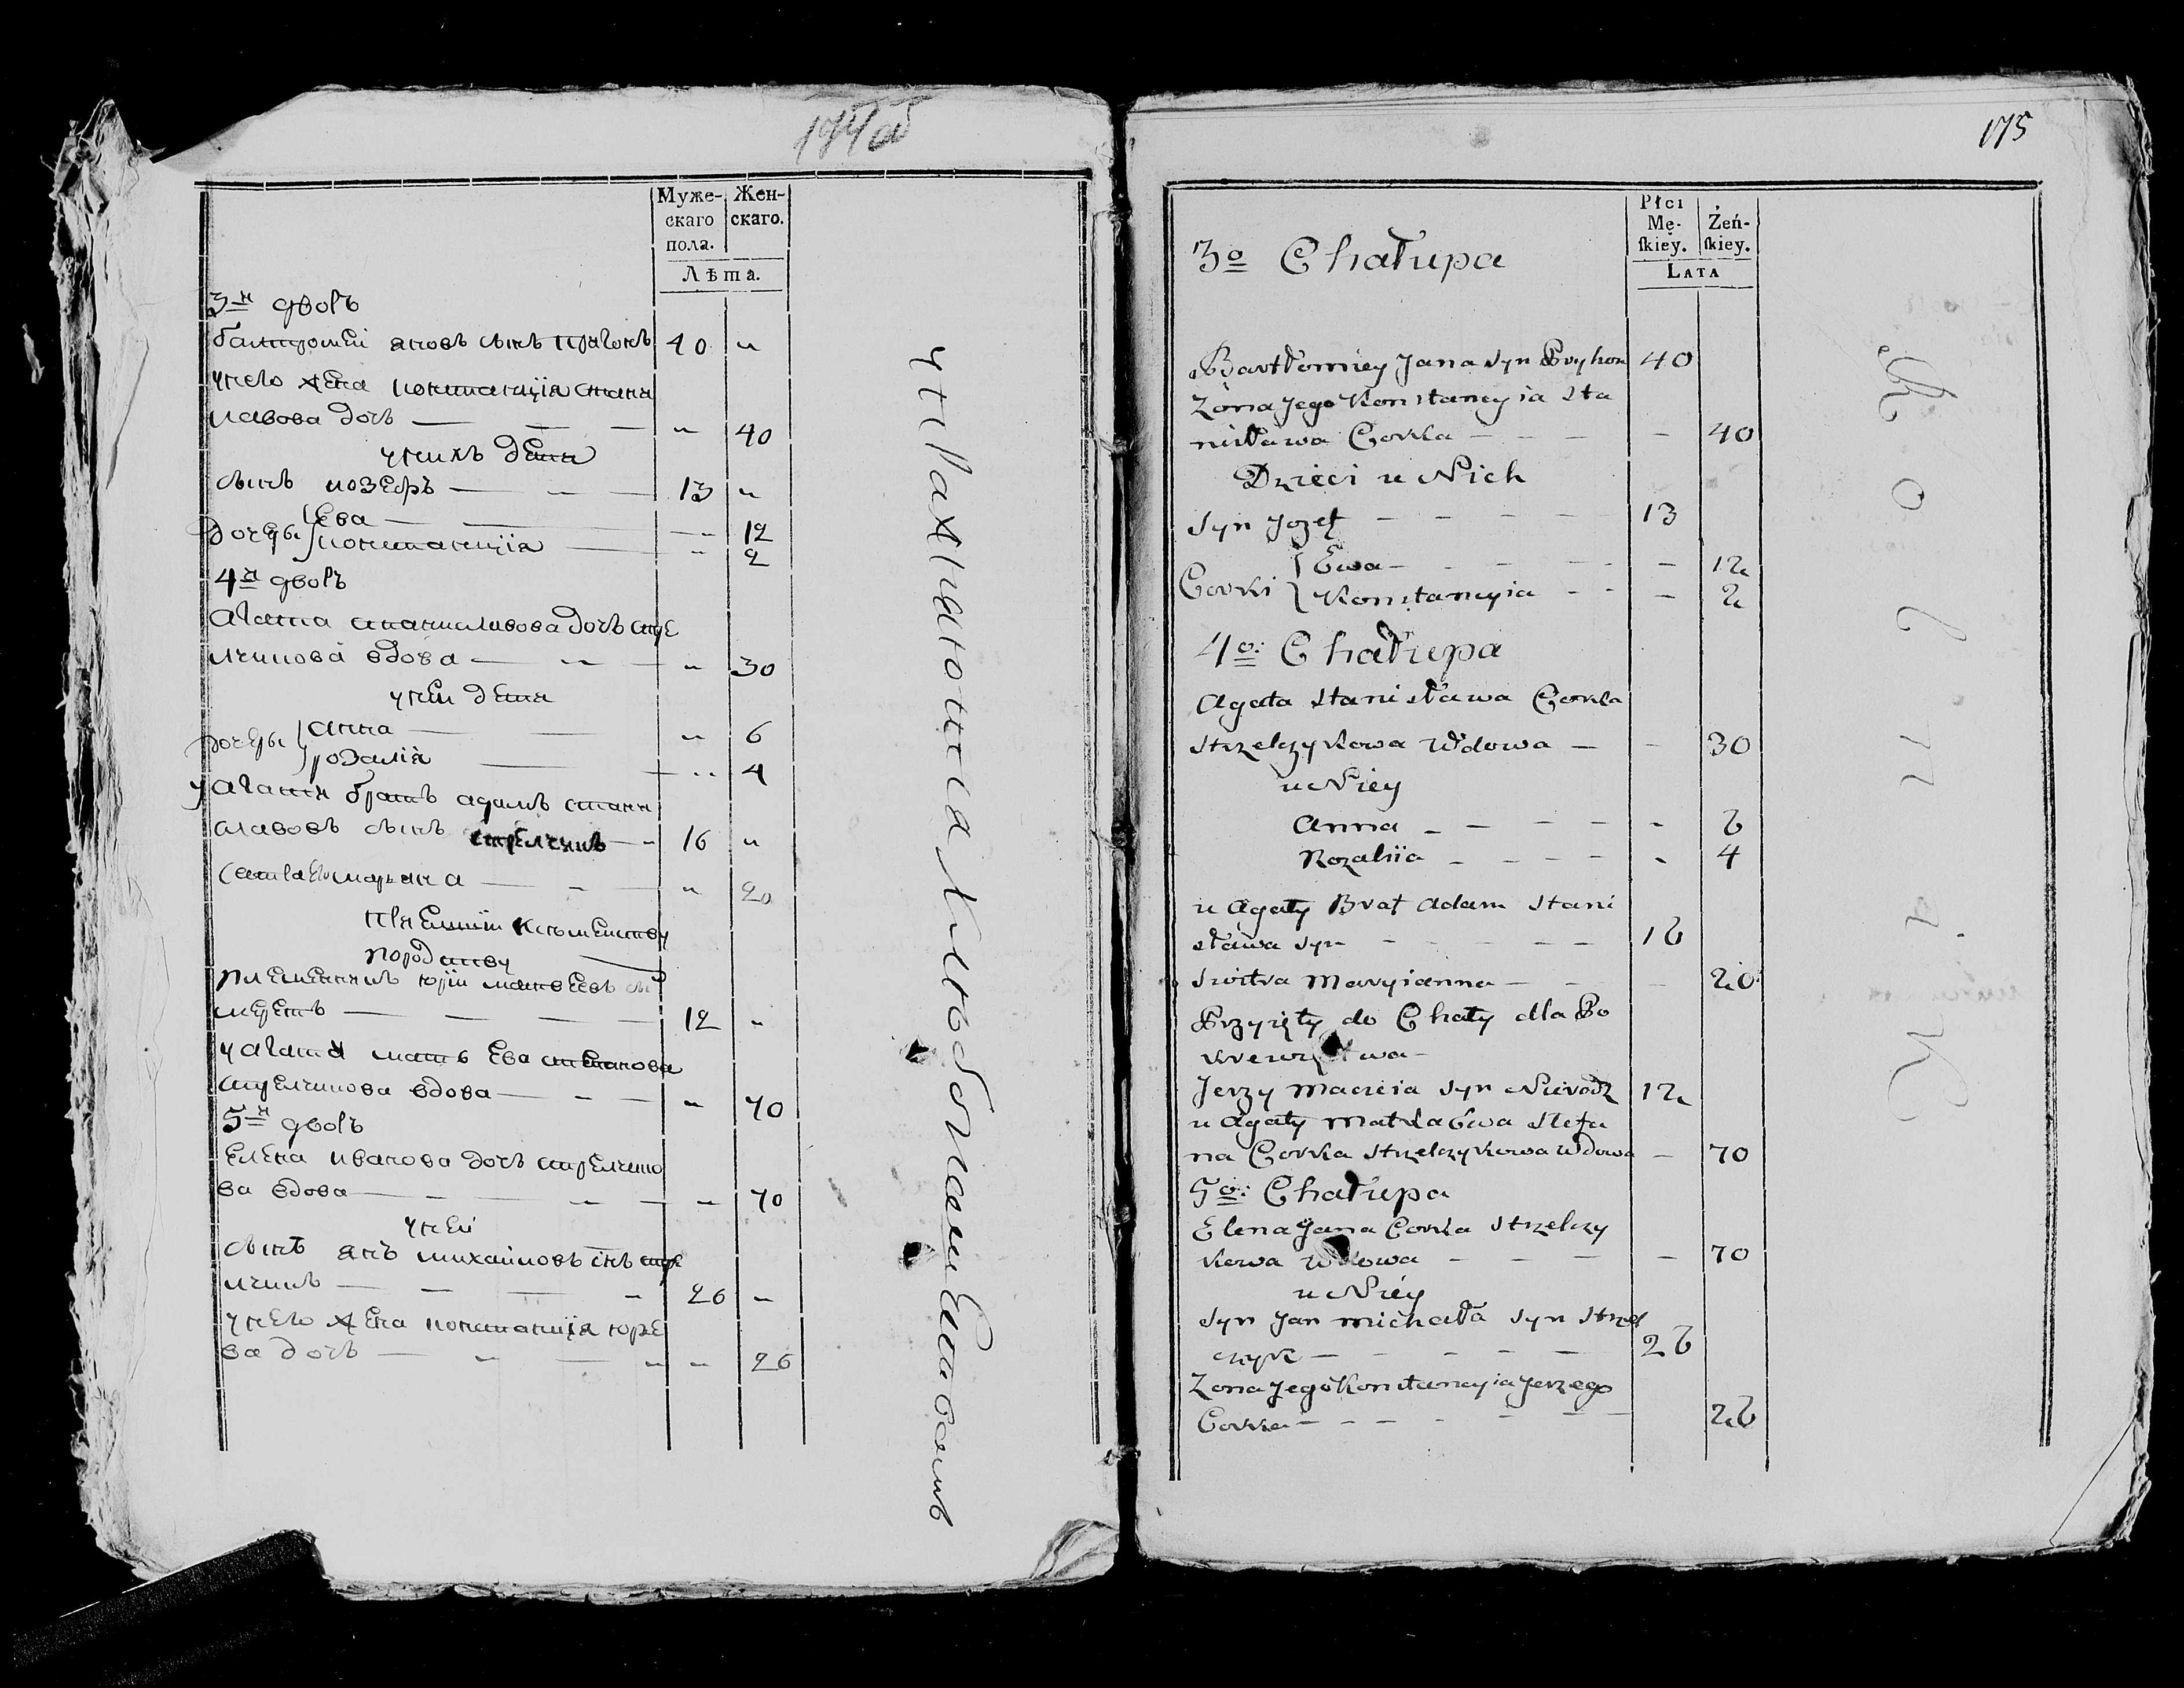 174об
Муже-
скаго
пола.
Жен-
скаго.
Лѣта.
3й дворъ
балтромей яновъ сынъ
40 „
у него жена констанція стани
славова дочь — — — „ 40
у нихъ дети
сынъ юзефъ — — — 13 „
дочери ева — — „ 12
констанція — „ 2
4й дворъ
агата станиславова дочь стре
лчикова вдова — — — „ 30
у ней дети
дочери анна — — „ 6
розалія — — „ 4
у агати братъ адамъ стани
славовъ сынъ стрелчикъ — 16 „
сестра марьяна — — — „ 20
породству
племенникъ юрій матвеевъ
— — — — 12 „
у агати мать ева степанова
стрелчикова вдова — — — „ 70
5й дворъ
елена иванова дочь стрелчико
ва вдова — — — — „ 70
у ней
сынъ янъ михайловъ снъ стре
лчикъ — — — — 26 „
у него жена констанція юре
ва дочь — — — — „ 26
175
Płci
Mę-
skiey.
Żeń-
skiey.
LATA
3o Chałupa
Bartłomiey Jana syn Pryhon 40
Zona Jego Konstancyia Sta
nisława Corka — — — — 40
Dzieci u Nich
syn Jozef — — — — 13
Corki Ewa — — — — — 12
Konstancyia — — — 2
4o: Chałupa
Agata Stanisława Corka
Strzelczykowa Wdowa — — 30
u Niey
Anna — — — — — 6
Rozaliia — — — — — 4
u Agaty Brat Adam Stani
sława syn — — — — — 16
siostra Maryianna — — — 20
Przyięty do Chaty dla Po
krewieństwa —
Jerzy Macieia syn 12
u Agaty Matka Ewa Stefa
na Corka Strzelczykowa Wdowa — 70
5o: Chałupa
Elena Jana Corka Strzelczy
kowa Wdowa — — — — 70
u Niey
syn Jan Michała syn Strzel
czyk — — — — — 26
Zona Jego Konstancyia Jerzego
Corka — — — — — — 26